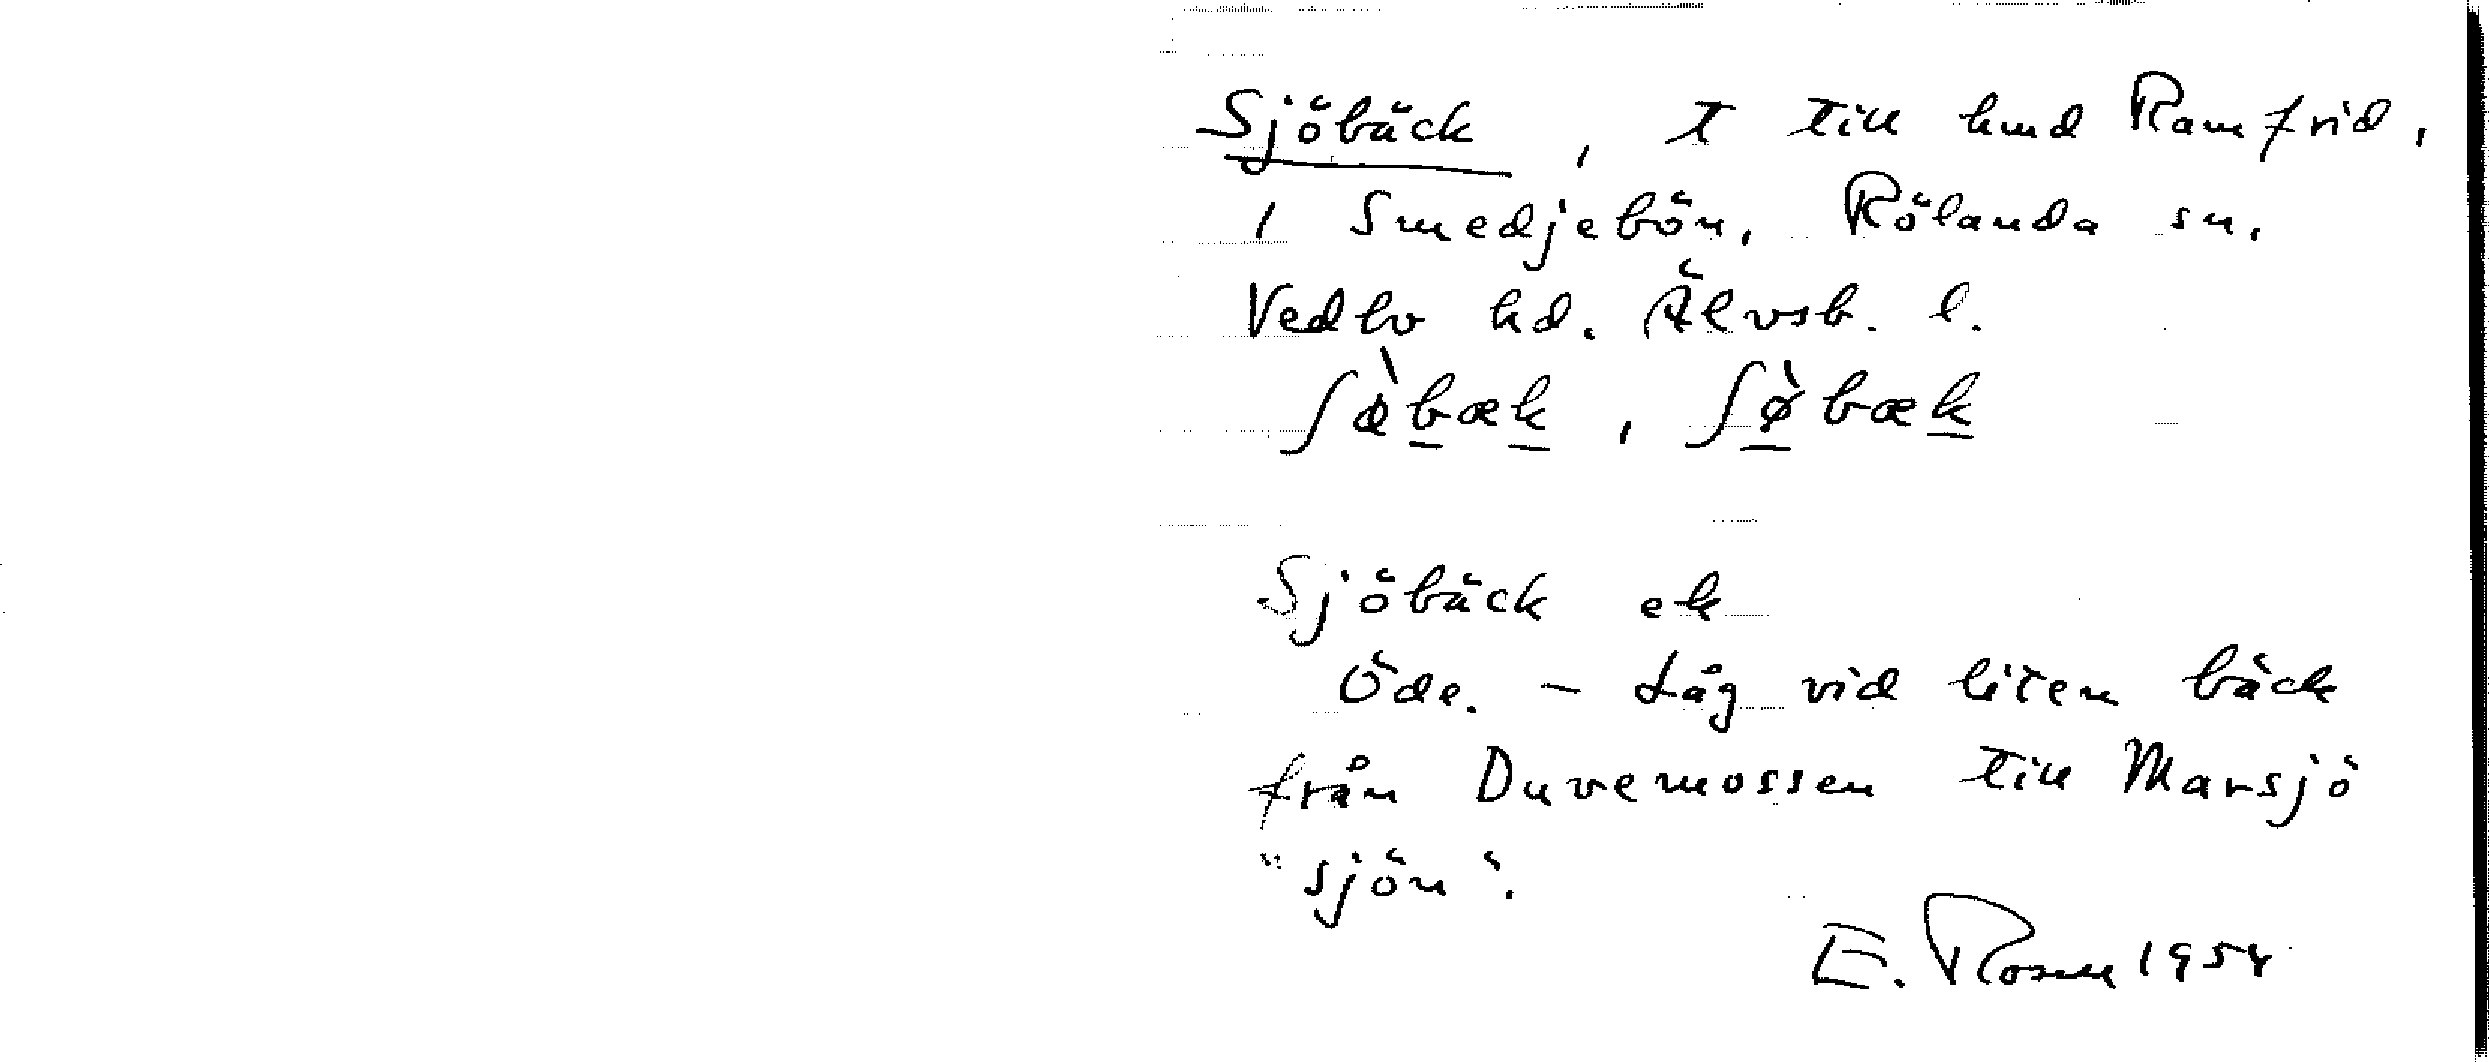 Sjöbäck, t till hmd Ramfrid,
i Smedjebön, Rölanda sn,
Vedbo hd. Älvsb. l.
bæk, ʃø̀bæk
Sjöbäck ek
Öde. - Låg vid liten bäck
från Duvemossen till Marsjö
"sjön".
E. Rosell 1954